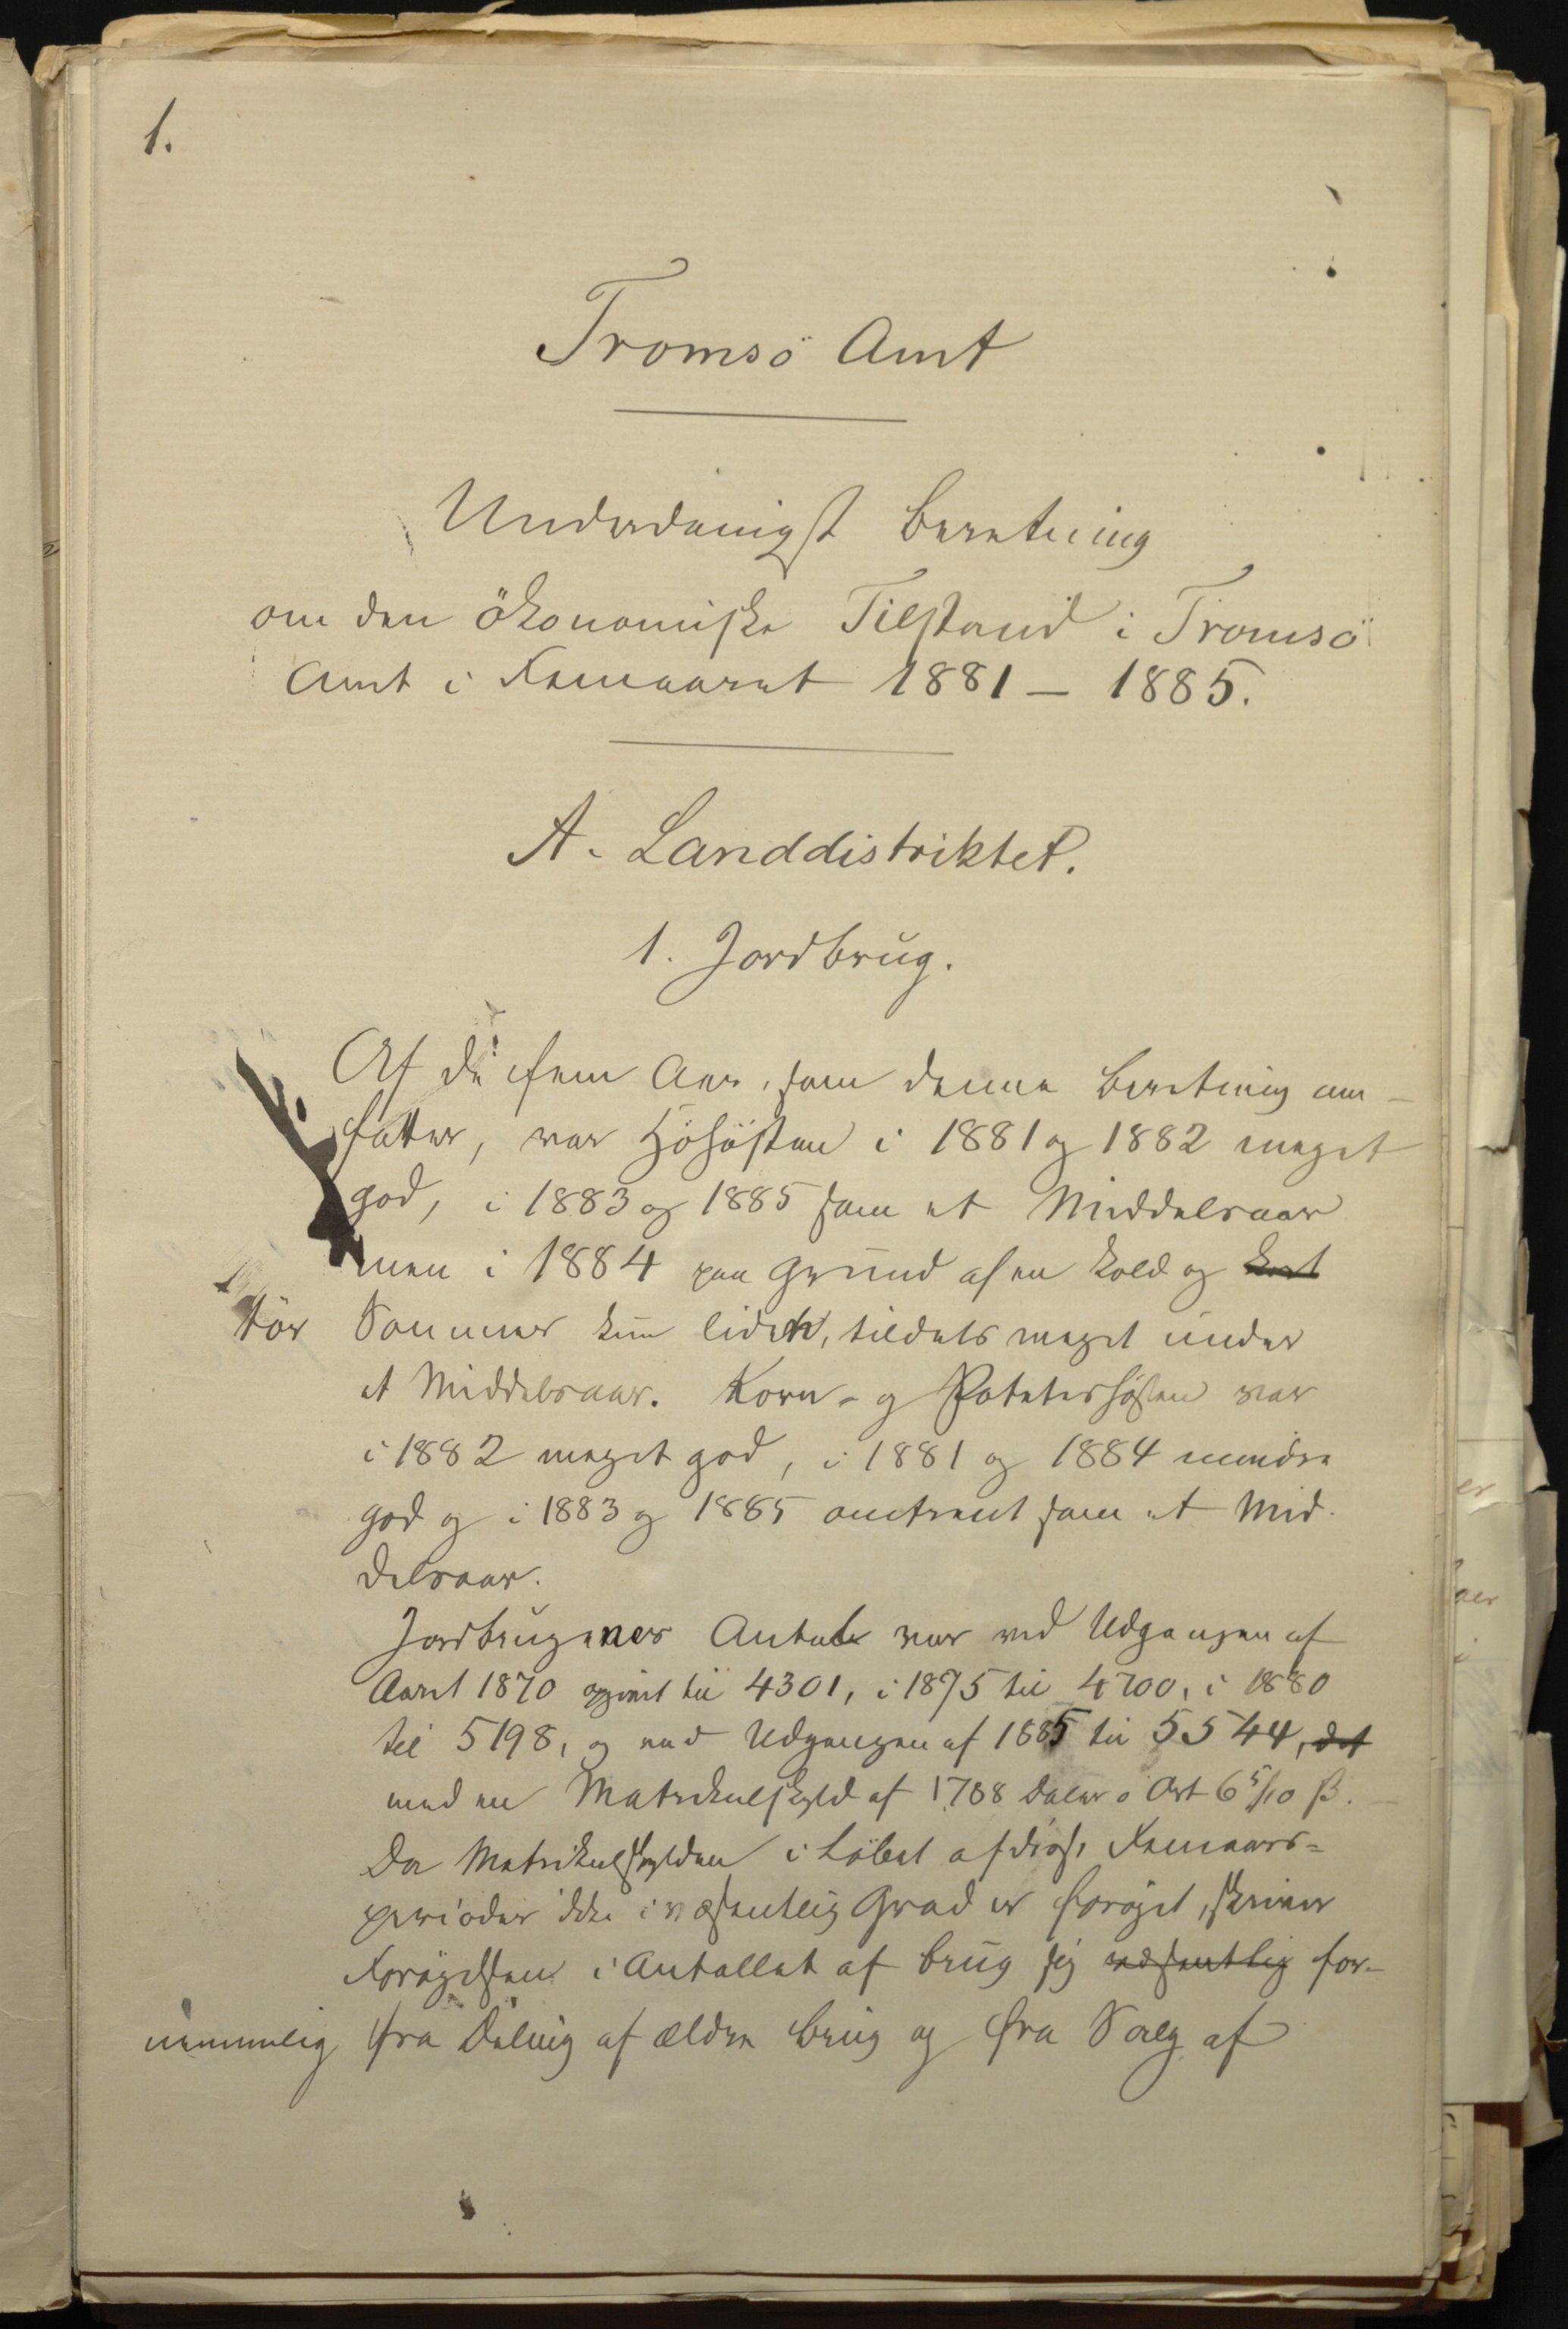 1.
Tromsö Amt
Underdanigst Beretning
om den ökonomiske Tilstand i Tromsö
Amt i Femaaret 1881 – 1885.
A. Landdistriktet.
1. Jordbrug.
Af de fem Aar, som denne Beretning om-
fatter, var Höhösten i 1881 og 1882 meget
god, i 1883 og 1885 som et Middelsaar
men i 1884 paa Grund af en kold og kort
tör Sommer kun lidet, tildels meget under
et Middelsaar. Korn- og Poteteshösten var
i 1882 meget god, i 1881 og 1884 mindre
god og i 1883 og 1885 omtrent som et Mid-
delsaar.
Jordbrugenes Antal var ved Udgangen af
Aaret 1870 opgivet til 4301, i 1875 til 4700, i 1880
til 5198, og ved Udgangen af 1885 til 5544, det
med en Matrikulskyld af 1788 Daler 0 Ort 6 5/10 ß.
Da Matrikulskylden i Löbet af disse Femaars-
perioder ikke i væsentlig Grad er foröget, skriver
Forögelsen i Antallet af Brug sig væsentlig for-
nemmelig fra Deling af ældre Brug og fra Salg af